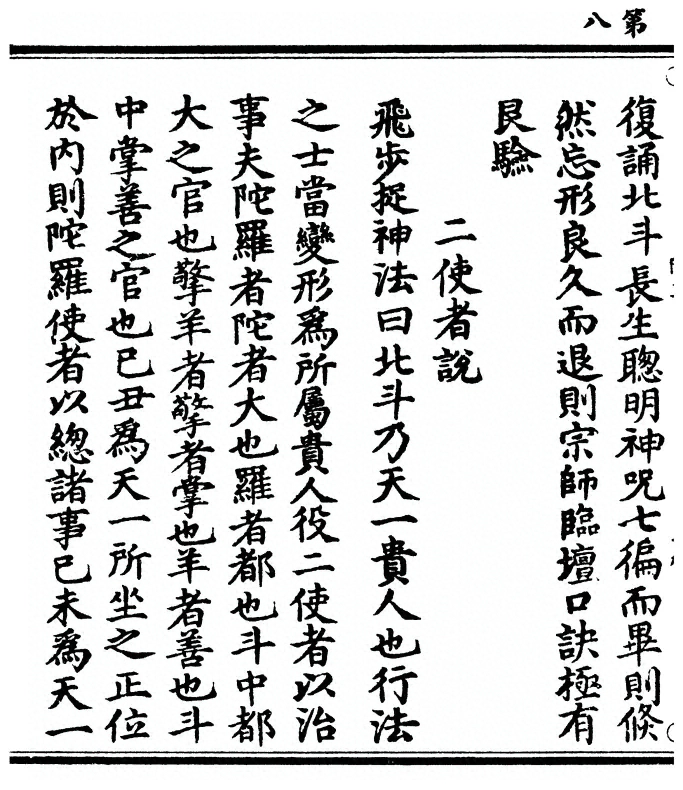 第八
復誦北斗長生聰明神呪七徧而畢則倐
然忘形良久而退則宗師臨壇口訣極有
良騐
二使者說
飛步捉神法曰北斗乃天一貴人也行法
之士當變形爲所屬貴人役二使者以治
事夫陀羅者陀者大也羅者都也斗中都
大之官也擎羊者擎者掌也羊者善也斗
中掌善之官也巳丑爲天一所坐之正位
於內則陀羅使者以緫諸事巳未爲天一